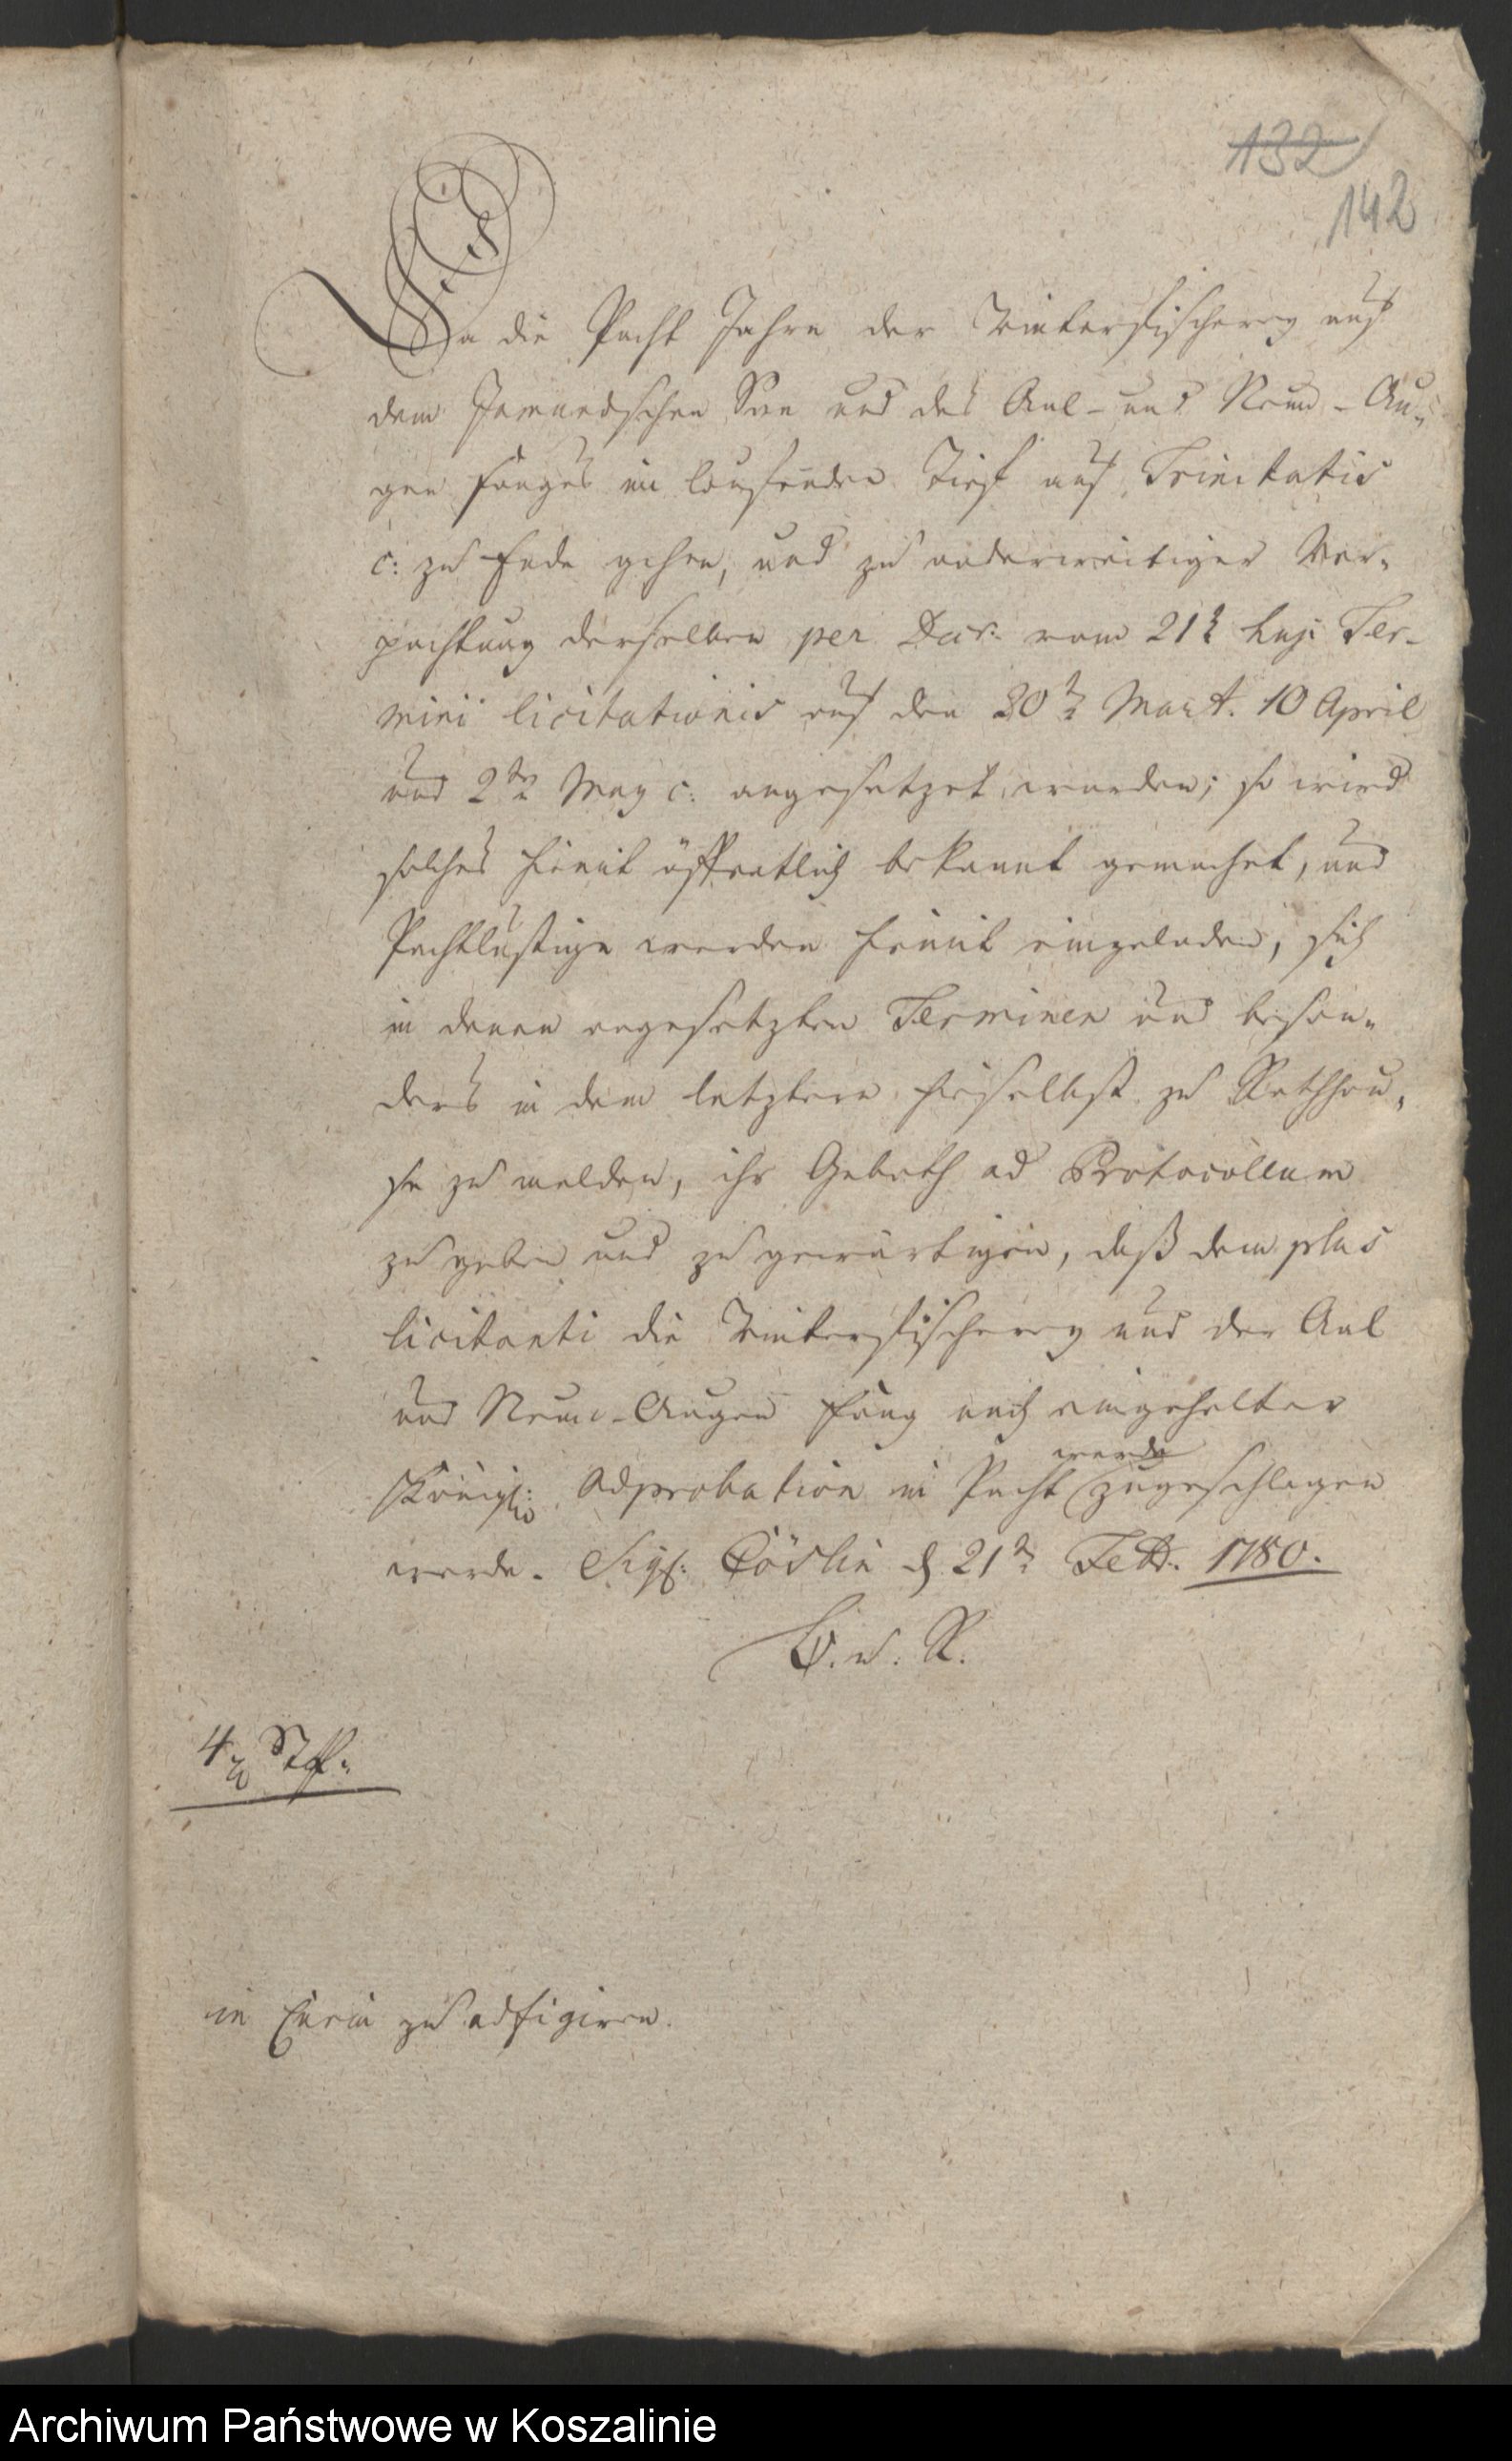 132
142
Da die Pacht Jahre der Winterfischerey auf
dem Jamundschen See und des Aal- und Neun-Au-
gen Fanges im laufenden Tief auf Trinitatis
c: zu Ende gehen, und zu anderweitiger Ver-
pachtung derselben per Decr. vom 21t huj: Ter-
mini licitationis auf den 20t Mart. 10 April
und 2ten May c: angesetzet worden; so wird
solches hiemit öffentlich bekannt gemachet, und
Pachtlustige werden hiemit eingeladen, sich
in denen angesetzten Terminen und beson-
ders in dem letztern hieselbst zu Rathhau-
se zu melden, ihr Geboth ad Protocollum
zu geben und zu gewärtigen, daß dem plus
licitanti die Winterfischerey und der Aal
und Neun-Augen Fang nach eingeholter
werde
Königl: Adprobation in Pacht zugeschlagen
werde. Sig: Cöslin d 21t Febr. 1780.
B. u. R.
4
in Curia zu adfigiren.
Archiwum Państwowe w Koszalinie